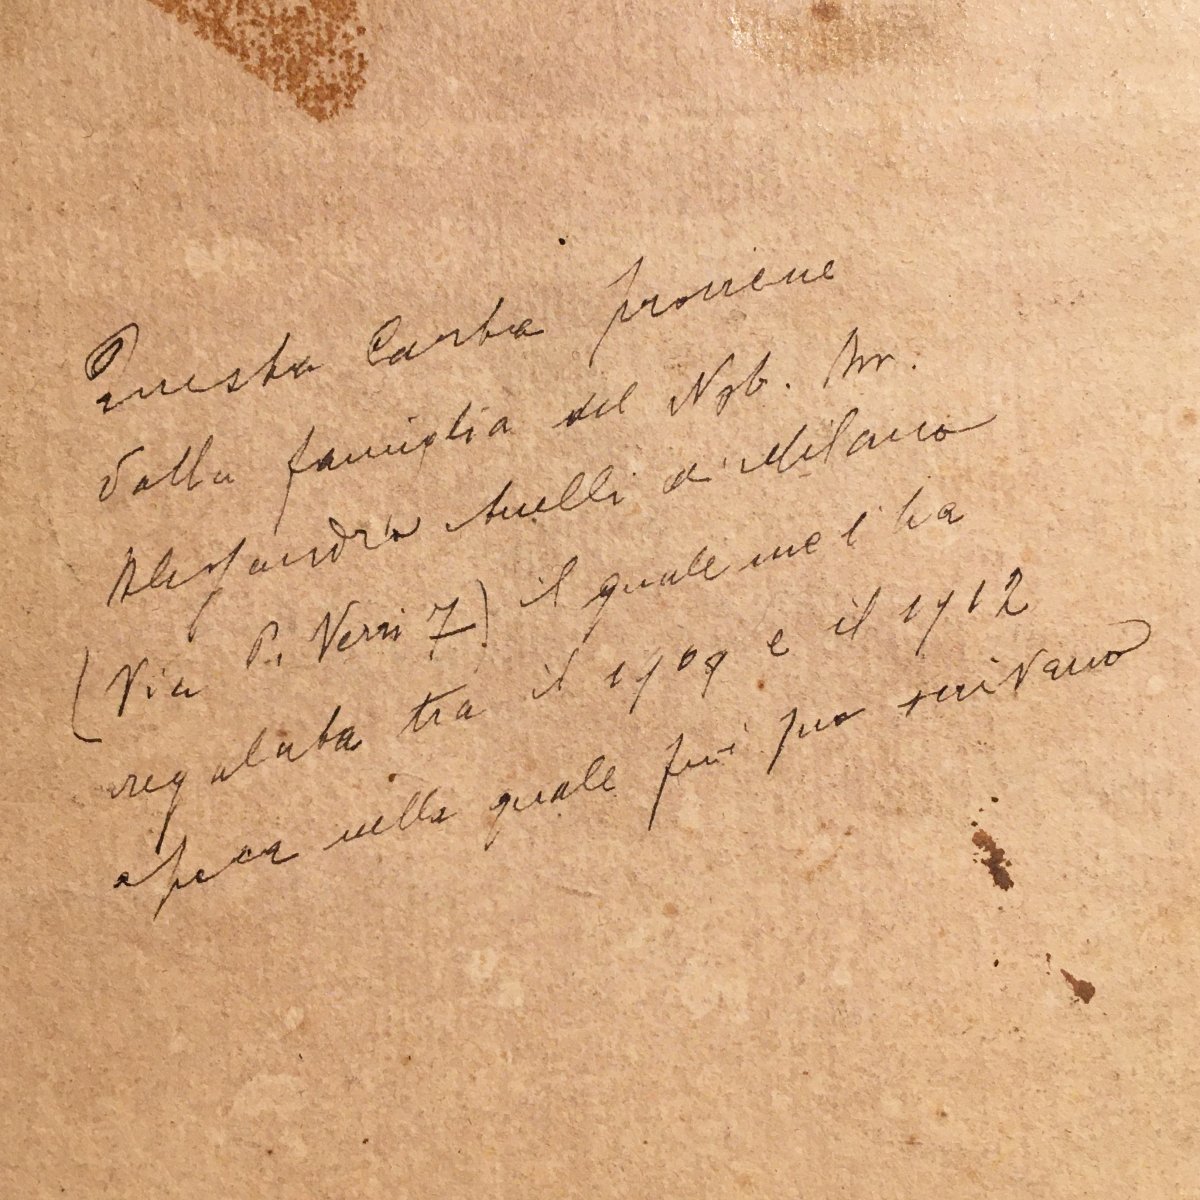 Questa Carta proviene
dalla famiglia del Nob. Avv.
Alessandro Anelli di Milano
(Via P. Verri 7) il quale me l'ha
regalata tra il 1909 e il 1912
epoca nella quale fui suo scrivano